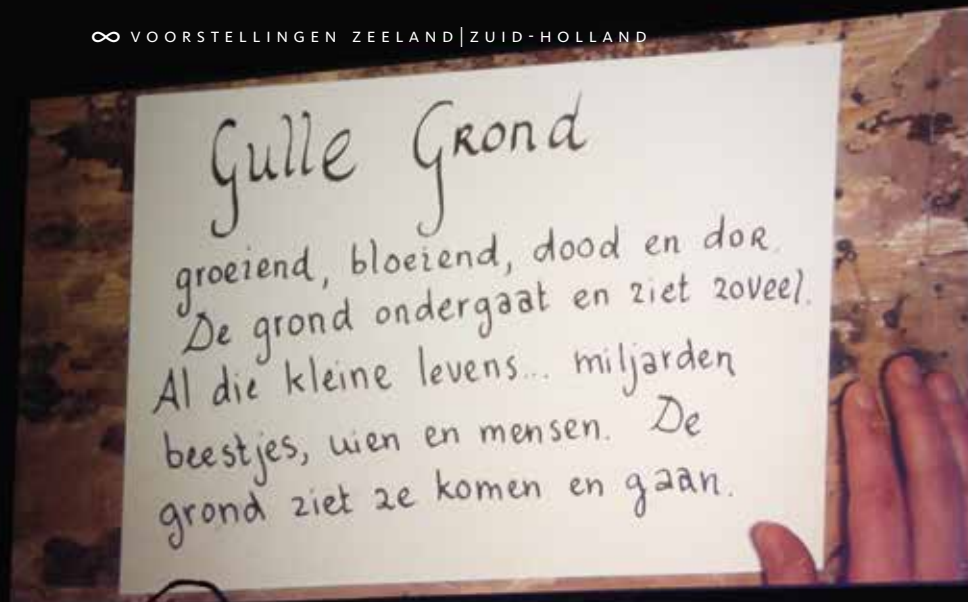 ∞ VOORSTELLINGEN ZEELAND|ZUID-HOLLAND
Gulle Grond
groeiend, bloeiend, dood en dor.
De grond ondergaat en ziet zoveel.
Al die kleine levens... miljarden
beestjes, uien en mensen. De
grond ziet ze komen en gaan.